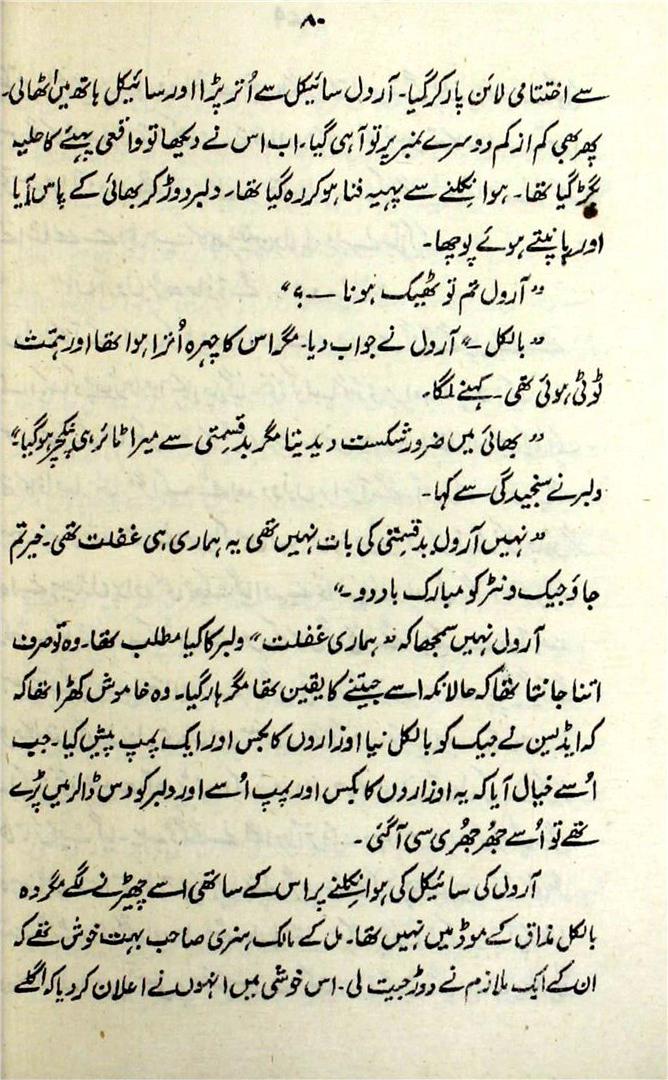 ۸۰
سے اختتامی لائن پار کر گیا۔ آرول سائیکل سے اُتر پڑا اور سائیکل ہاتھ میں اُٹھالی۔
پھر بھی کم از کم دوسرے نمبر پر تو آ ہی گیا۔ اب اس نے دیکھا تو واقعی پہیئے کا حلیہ
بگڑ گیا تھا۔ ہوا نکلنے سے پہیہ فنا ہو کر رہ گیا تھا۔ دلبر دوڑ کر بھائی کے پاس آیا
اور ہانپتے ہوئے پوچھا۔
”آرول تم تو ٹھیک ہونا ــ ؟“
”بالکل۔“ آرول نے جواب دیا۔ مگر اس کا چہرہ اُترا ہوا تھا اور ہمّت
ٹوٹی ہوئی تھی۔ کہنے لگا۔
”بھائی میں ضرور شکست دیدیتا مگر بدقسمتی سے میرا ٹائر ہی پنکچر ہو گیا“
دلبر نے سنجیدگی سے کہا۔
”نہیں آرول بدقسمتی کی بات نہیں تھی یہ ہماری ہی غفلت تھی۔ خیر تم
جاؤ جیک ونٹر کو مبارک باد دو۔“
آرول نہیں سمجھا کہ ”ہماری غفلت“ ولبر کا کیا مطلب تھا۔ وہ تو صرف
اتنا جانتا تھا کہ حالانکہ اسے جیتنے کا یقین تھا مگر ہار گیا۔ وہ خاموش کھڑا تھا کہ
کہ ایڈلین نے جیک کو بالکل نیا اوزاروں کا بکس اور ایک پمپ پیش کیا۔ جب
اُسے خیال آیا کہ یہ اوزاروں کا بکس اور پمپ اُسے اور دلبر کو دس ڈالر میں پڑے
تھے تو اُسے جھرجھری سی آگئی۔
آرول کی سائیکل کی ہوا نکلنے پر اس کے ساتھی اسے چھیڑنے لگے مگر وہ
بالکل مذاق کے موڈ میں نہیں تھا۔ مل کے مالک ہنری صاحب بہت خوش تھے کہ
ان کے ایک ملازم نے دوڑ جیت لی۔ اس خوشی میں انہوں نے اعلان کر دیا کہ اگلے